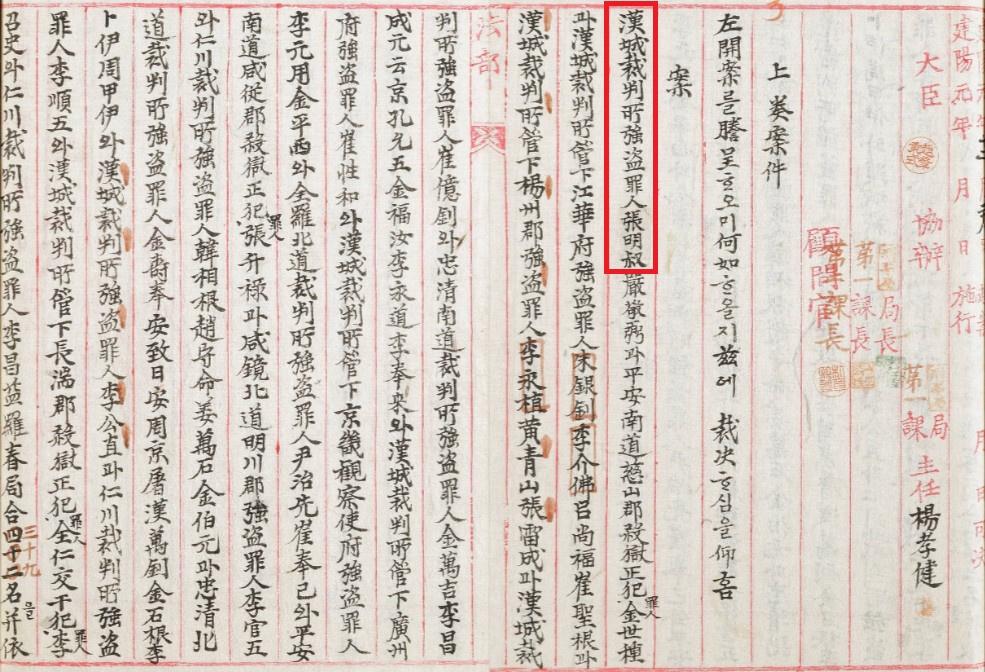 建陽元年 月 日 施行
大臣 協辦
局 主任 楊孝健
第一課
局長
第一課長
顧問官
上奏案件
左開案를謄呈ᄒᆞ오미何如ᄒᆞ올지玆에 裁决ᄒᆞ심을仰홈
案
漢城裁判所強盗罪人張明叔嚴徵弼과平安南道慈山郡殺獄正犯罪人金世種
과漢城裁判所管下江華府強盗罪人宋銀釗李介佛呂尚福崔聖根과
漢城裁判所管下楊州郡強盗罪人李永植黄青山張雷成과漢城裁
法部
判所強盗罪人崔億釗와忠清南道裁判所強盗罪人金萬吉李昌
成元云京孔允五金福汝李永道李奉와漢城裁判所管下廣州
府強盗罪人崔性和와漢城裁判所管下京畿觀察使府強盗罪人
李元用金平西와全羅北道裁判所強盗罪人尹治先崔奉已와平安
南道咸從郡殺獄正犯罪人張升祿과咸鏡北道明川郡強盗罪人李官五
와仁川裁判所強盗罪人韓相根趙命姜萬石金伯元과忠清北
道裁判所強盗罪人金壽奉安致日安周京屠漢萬釗金石根李
卜伊周甲伊와漢城裁判所強盗罪人李公直과仁川裁判所強盗
罪人李順五와漢城裁判所管下長湍郡殺獄正犯罪人全仁交干犯罪人李
召史와仁川裁判所強盗罪人李昌益羅春局合四十二三十九名을并依